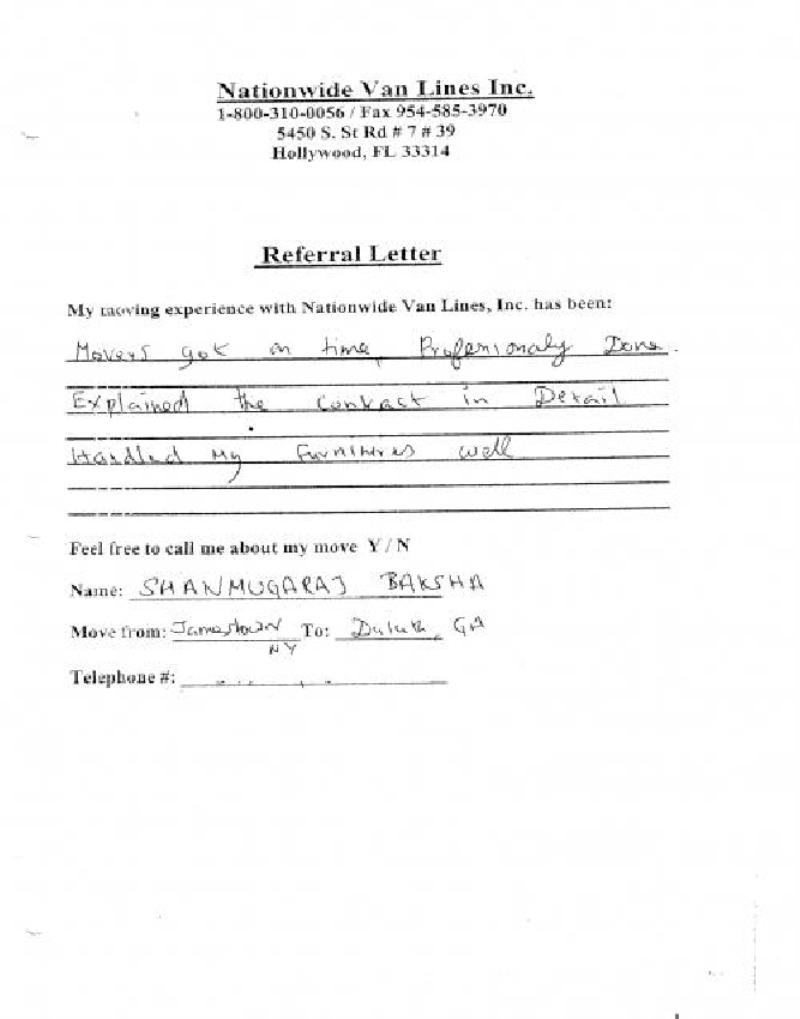 Nationwide Van Lines Inc.
1-800-310-0056 / Fax 954-585-3970
5450 S. St Rd # 7 # 39
Hollywood, FL 33314
Referral Letter
My moving experience with Nationwide Van Lines, Inc. has been:
Movers got on time, Professionaly Done.
Explained the contract in Detail
Handled My Furnitures well
Feel free to call me about my move Y / N
Name: SHANMUGARAJ BAKSHA
Move from: Jamestown To: Duluth, GA
NY
Telephone #: